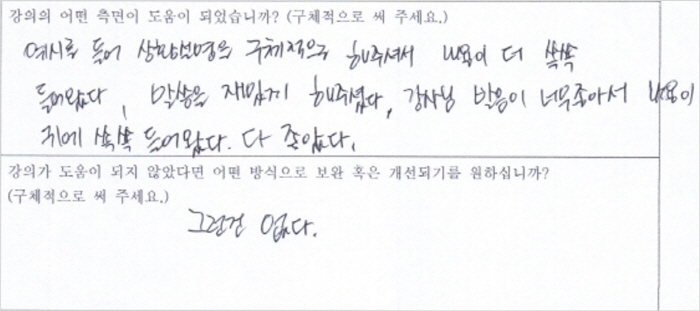 강의의 어떤 측면이 도움이 되었습니까? (구체적으로 써 주세요.)
예시를 들어 상황설명을 구체적으로 해주셔서 내용이 더 쏙쏙
들어왔다, 말씀을 재밌게 해주셨다, 강사님 발음이 너무좋아서 내용이
귀에 쏙쏙 들어왔다. 다 좋았다.
강의가 도움이 되지 않았다면 어떤 방식으로 보완 혹은 개선되기를 원하십니까?
(구체적으로 써 주세요.)
그런건 없다.